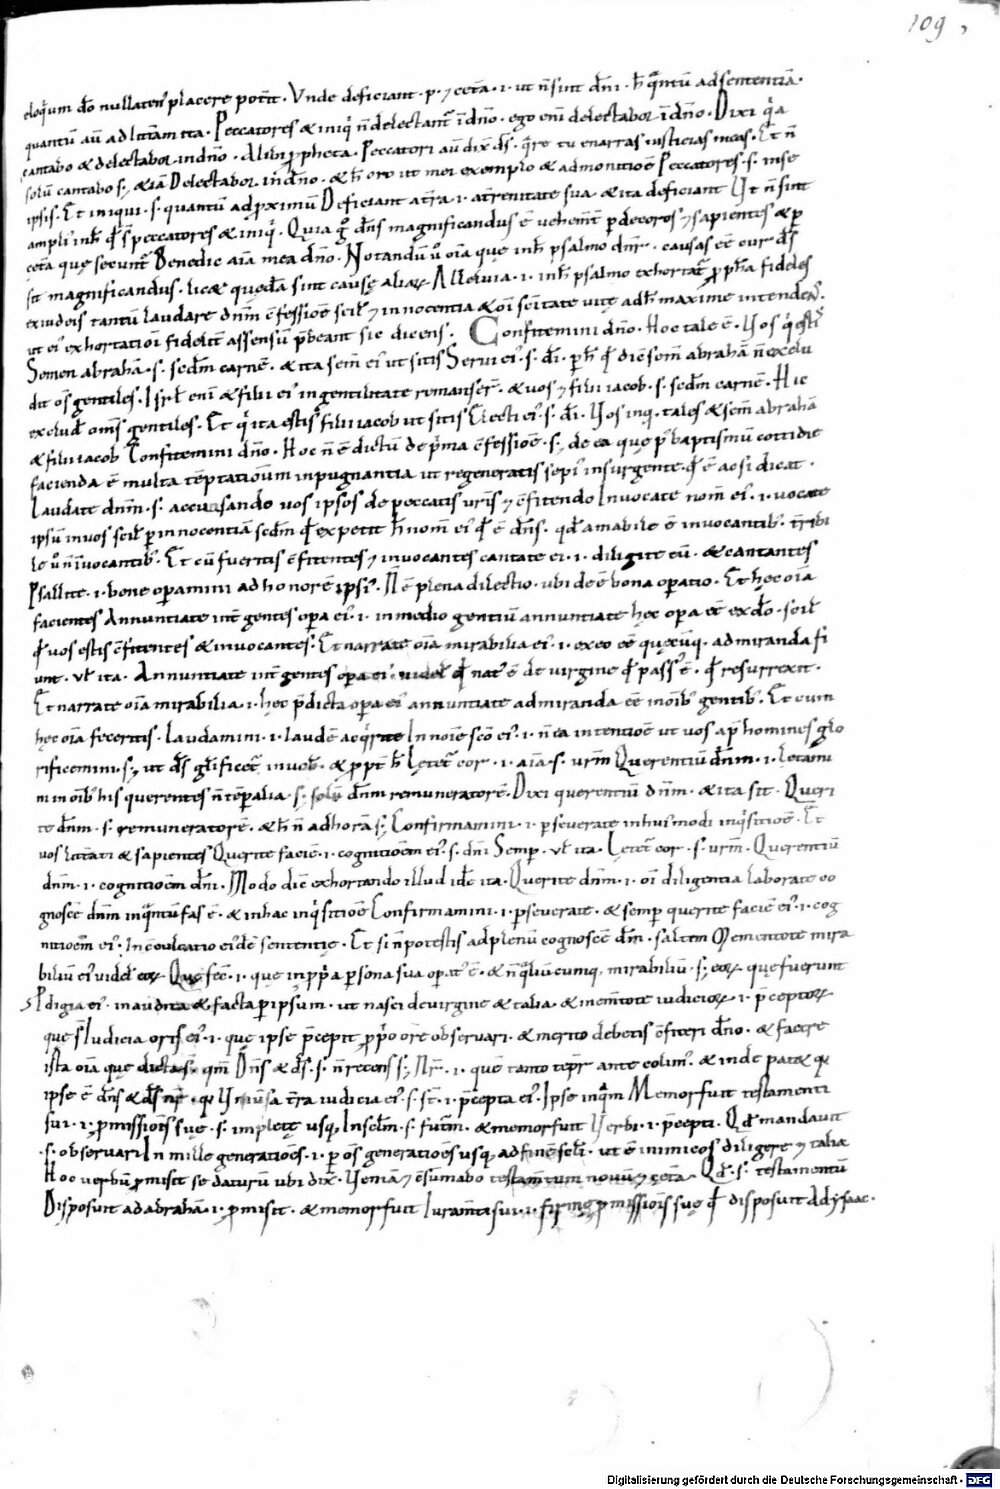 109
eloq̄ium d̄o nullaten' placere potē̄t . Vnde deficiant . p . ⁊ cetā . i . ut n̄ sint dn̄i . h̄ q̄ntū ad sententiā .
quantū aū ad litt̄am ita . Peccatores & iniq̄ n̄ delectant̄ in dn̄o . ego enī delectabor in dn̄o . Dixi q̄a
cantabo & delectabor in dn̄o . Alibi ꝓpheta . Peccatori aū dix̄ ds̄ . q̄re tu enarras iusticias meas . Et n̄
solū cantabo s; & iā Delectabor in dn̄o . & h̄ oro ut meo exemplo & admonitiōe Peccatores . s . in se
ipsis . Et iniqui . s . quantū ad ꝓximū Deficiant a t̄ra . i . a t̄renitate sua & ita deficiant Vt n̄ sint
ampli' in h̄ qd̄ s̄ peccatores & iniq̄ . Quia g̊ dn̄s magnificandus ē uehem̄t ꝑ decoros ⁊ sapientes & ꝑ
cetā quę secunt̄ Benedic aīa mea dn̄o . Notandū ů oīa quę in h̄ psalmo dn̄r . causas eē cur ds̄
sit magnificandus . licæ quędā sint causę aliæ Alleluia . i . in h̄ psalmo exhortat̄ ꝓph̄a fideles
ex iudeis tantū laudare dn̄m c̄fessiōe scil' ⁊ innocentia & oī sc̄itate uitę ad h̄ maxime intendēs .
ut ei' exhortatiōi fideliū assensū p̄beant sic dicens . Confitemini dn̄o . Hoc tale ē . Vos q̄ estis
Semen abrahā . s . sedm̄ carnē . & ita sem̄ ei' ut sitis Serui ei' . s . di . p h̄ qd̄ diē sem̄ abrahā n̄ exclu
dit os̄ gentiles . Isrl̄ enī & filii ei' in gentilitate remanser̄ . & uos ⁊ filii iacob . s . sedm̄ carnē . Hic
excludit om̄s gentiles . Et q̄ ita estis filii iacob ut sitis Electi ei' . s . di . Vos inq̄ . tales & sem̄ abrahā
& filii iacob Confitemini dn̄o . Hoc n̄ ē dictū de p̄ma c̄fessiōe . s; de ea quę p' baptismū cottidie
facienda ē multa tēptationū inpugnantia ut regeneratis sepi' insurgente . qd̄ ē ac si dicat .
Laudate dn̄m . s . accusando uos ipsos de peccatis ur̄is ⁊ c̄fitendo Inuocate nom̄ ei' . i . uocate
ipsū in uos scil' ꝑ innocentiā sedm̄ qd̄ expetit h̄ nom̄ ei' qd̄ ē dn̄s . qd̄ amabile ē inuocantib' . t̄ribi
le ů n̄ inuocantib' . Et cū fueritis c̄fitentes ⁊ inuocantes cantate ei . i . diligite eū . & cantantes
Psallite . i . bene oꝑamini ad honorē ipsi' . N̄ ē plena dilectio . ubi deē bona oꝑatio . Et hęc oīa
facientes Annuntiate int̄ gentes oꝑa ei' . i . in medio gentiū annuntiate hęc oꝑa eē ex dō . scil'
qd̄ uos estis c̄fitentes & inuocantes . Et narrate oīa mirabilia ei' . i . ex eo eē quęcūq; admiranda fi
unt . ul' ita . Annuntiate int̄ gentis oꝑa ei' . uidel' qd̄ nat' ē de uirgine qd̄ pass' ē . qd̄ resurrexit .
Et narrate oīa mirabilia . i . hęc p̄dicta oꝑa ei' annuntiate admiranda eē in oīb' gentib' . Et cum
hęc oīa feceritis . Laudamini . i . laudē acq̄rite In noīe scō ei' . i . n̄ ea intentiōe ut uos ap' homines glo
rificemini . s; ut ds̄ gl̄ificet̄ in uob' . & ꝓpt̄ h̄ Lętet̄ cor . i . aīa . s . urm̄ Querentiū dn̄m . i . lętami
ni in oīb' his querentes n̄ tēꝑalia . s; solū dn̄m remuneratorē . Dixi querentiū dn̄m . & ita sit . Queri
te dn̄m . s . remuneratorē . & h̄ n̄ ad horā s; Confirmamini . i . ꝑseuerate in hui' modi inq̄sitiōe . Et
uos litt̄ati & sapientes Querite faciē . i . cognitiōem ei' . s . dn̄i Semꝑ . ul' ita . Lętet̄ cor . s . urm̄ . Querentiū
dn̄m . i . cognitiōem dn̄i . Modo diē exhortando illud idē ita . Querite dn̄m . i . oī diligentia laborate co
gnoscē dn̄m inq̄ntū fas ē . & in hac inq̄sitiōe Confirmamini . i . ꝑseuerate . & semꝑ querite faciē ei' . i . cog
nitiōem ei' . Inculcatio ei' dē sententię . Et si n̄ potestis ad plenū cognoscē dn̄m . saltem Mementote mira
biliū ei' uidel' eoꝝ Quę fec̄ . i . quę in ꝓp̄a ꝑsona sua oꝑat' ē . & n̄ q̄liūcumq; mirabiliū . s; eoꝝ quę fuerunt
Pdigia ei' . inaudita & facta ꝑ ipsum . ut nasci de uirgine & talia . & mem̄tote iudicioꝝ . i . p̄ceptoꝝ
quę s̄ Iudicia oris ei' . i . quę ipse p̄cepit ꝓp̄o ore obseruari . & merito debetis c̄fiteri dn̄o . & facere
ista oīa quę dicta s̄ . qm̄ Dn̄s & ds̄ . s . n̄ recens s; Nr̄ . i . quē tanto tēpr̄e ante colim' . & inde patæ qd̄
ipse ē dn̄s & ds̄ nr̄ . qd̄ Vniuersa t̄ra iudicia ei' . s . st̄ . i . p̄cepta ei' . Ipse inq̄m Memor fuit testamenti
sui . i . ꝓmissiōis suę . s . implete usq; In sclm̄ . s . futm̄ . & memor fuit Verbi . i . p̄cepti . Qd̄ mandauit
. s . obseruari In mille generatiōes . i . ꝑ os̄ generatiōes usq; ad finē scli̅ . ut ē inimicos diligere ⁊ talia
Hoc uerbū ꝓmisit se daturū ubi dix̄ . Veniā ⁊ c̄sumabo testam̄tum nouū ⁊ cętā . Qd̄ . s . testamentū
Disposuit ad abrahā . i . ꝓmisit . & memor fuit Iuram̄ti sui . i . firmę ꝓmissiōis suę qd̄ disposuit Ad ysaac .
Digitalisierung gefördert durch die Deutsche Forschungsgemeinschaft - DFG